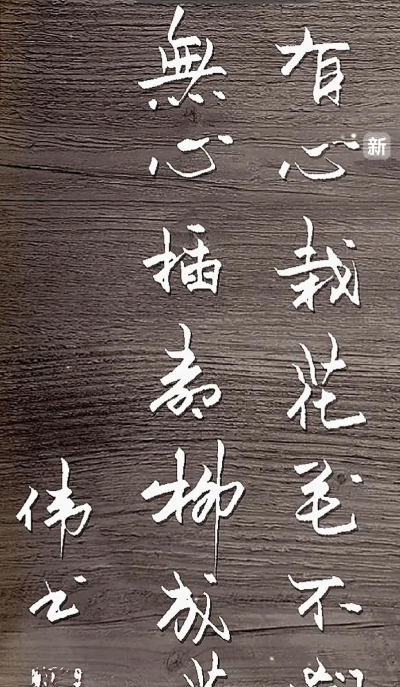 有心栽花花不
無心插柳柳成
伟书
新